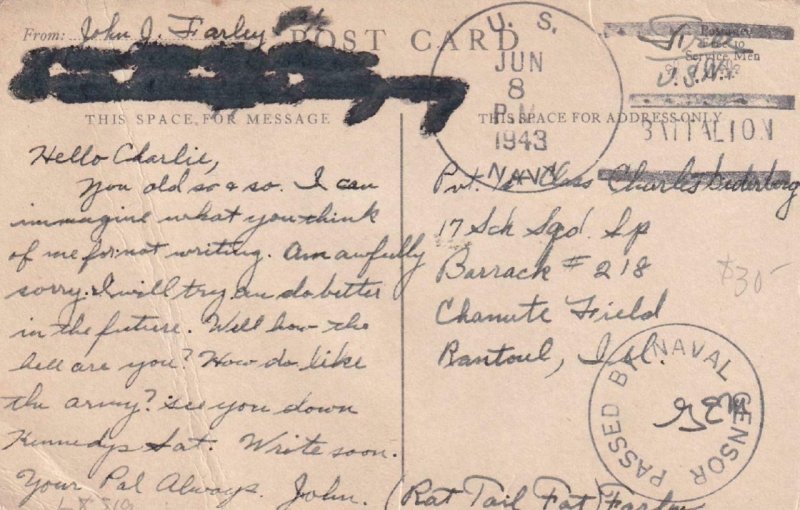 From: John J. Farley
POST CARD
THIS SPACE FOR MESSAGE
Hello Charlie,
You old so & so. I can
immagine what you think
of me for not writing. Am awfully
sorry. I will try an do better
in the future. Well how the
hell are you? How do like
the army? see you down
Kennedys Sat. Write soon.
Your Pal Always. John. (Rat Tail Fat) Farley
U. S.
JUN
8
P.M.
1943
NAVY
Free
U.S.N.
Service Men
BATTALION
THIS SPACE FOR ADDRESS ONLY
Pvt. Class Charles
17 Sch Sqd. Sp
Barrack # 218
Chanute Field
Rantoul, Ill.
$30-
PASSED BY NAVAL CENSOR